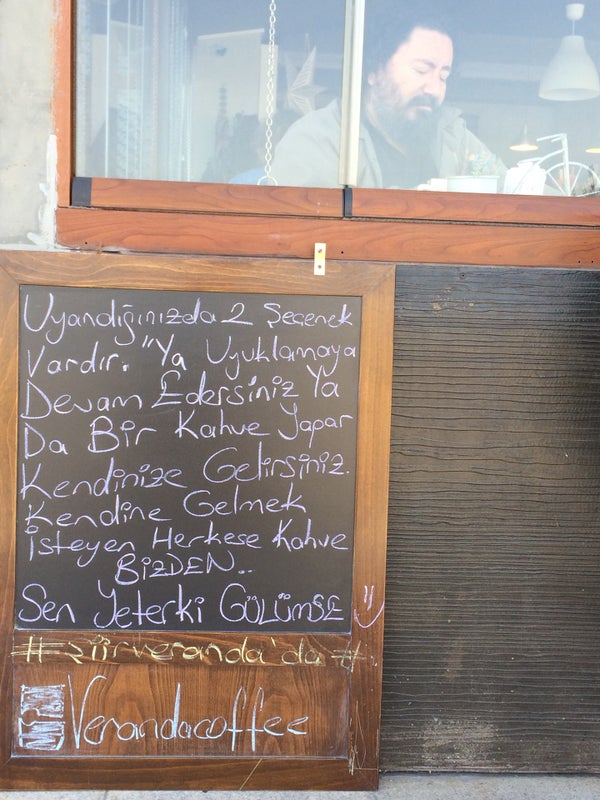 Uyandığınızda 2 Seçenek
Vardır. "Ya Uyuklamaya
Devam Edersiniz Ya
Da Bir Kahve Yapar
Kendinize Gelirsiniz.
Kendine Gelmek
İsteyen Herkese Kahve
BİZDEN..
Sen Yeterki GÜLÜMSE :)
#şiirveranda'da #
Verandacoffee